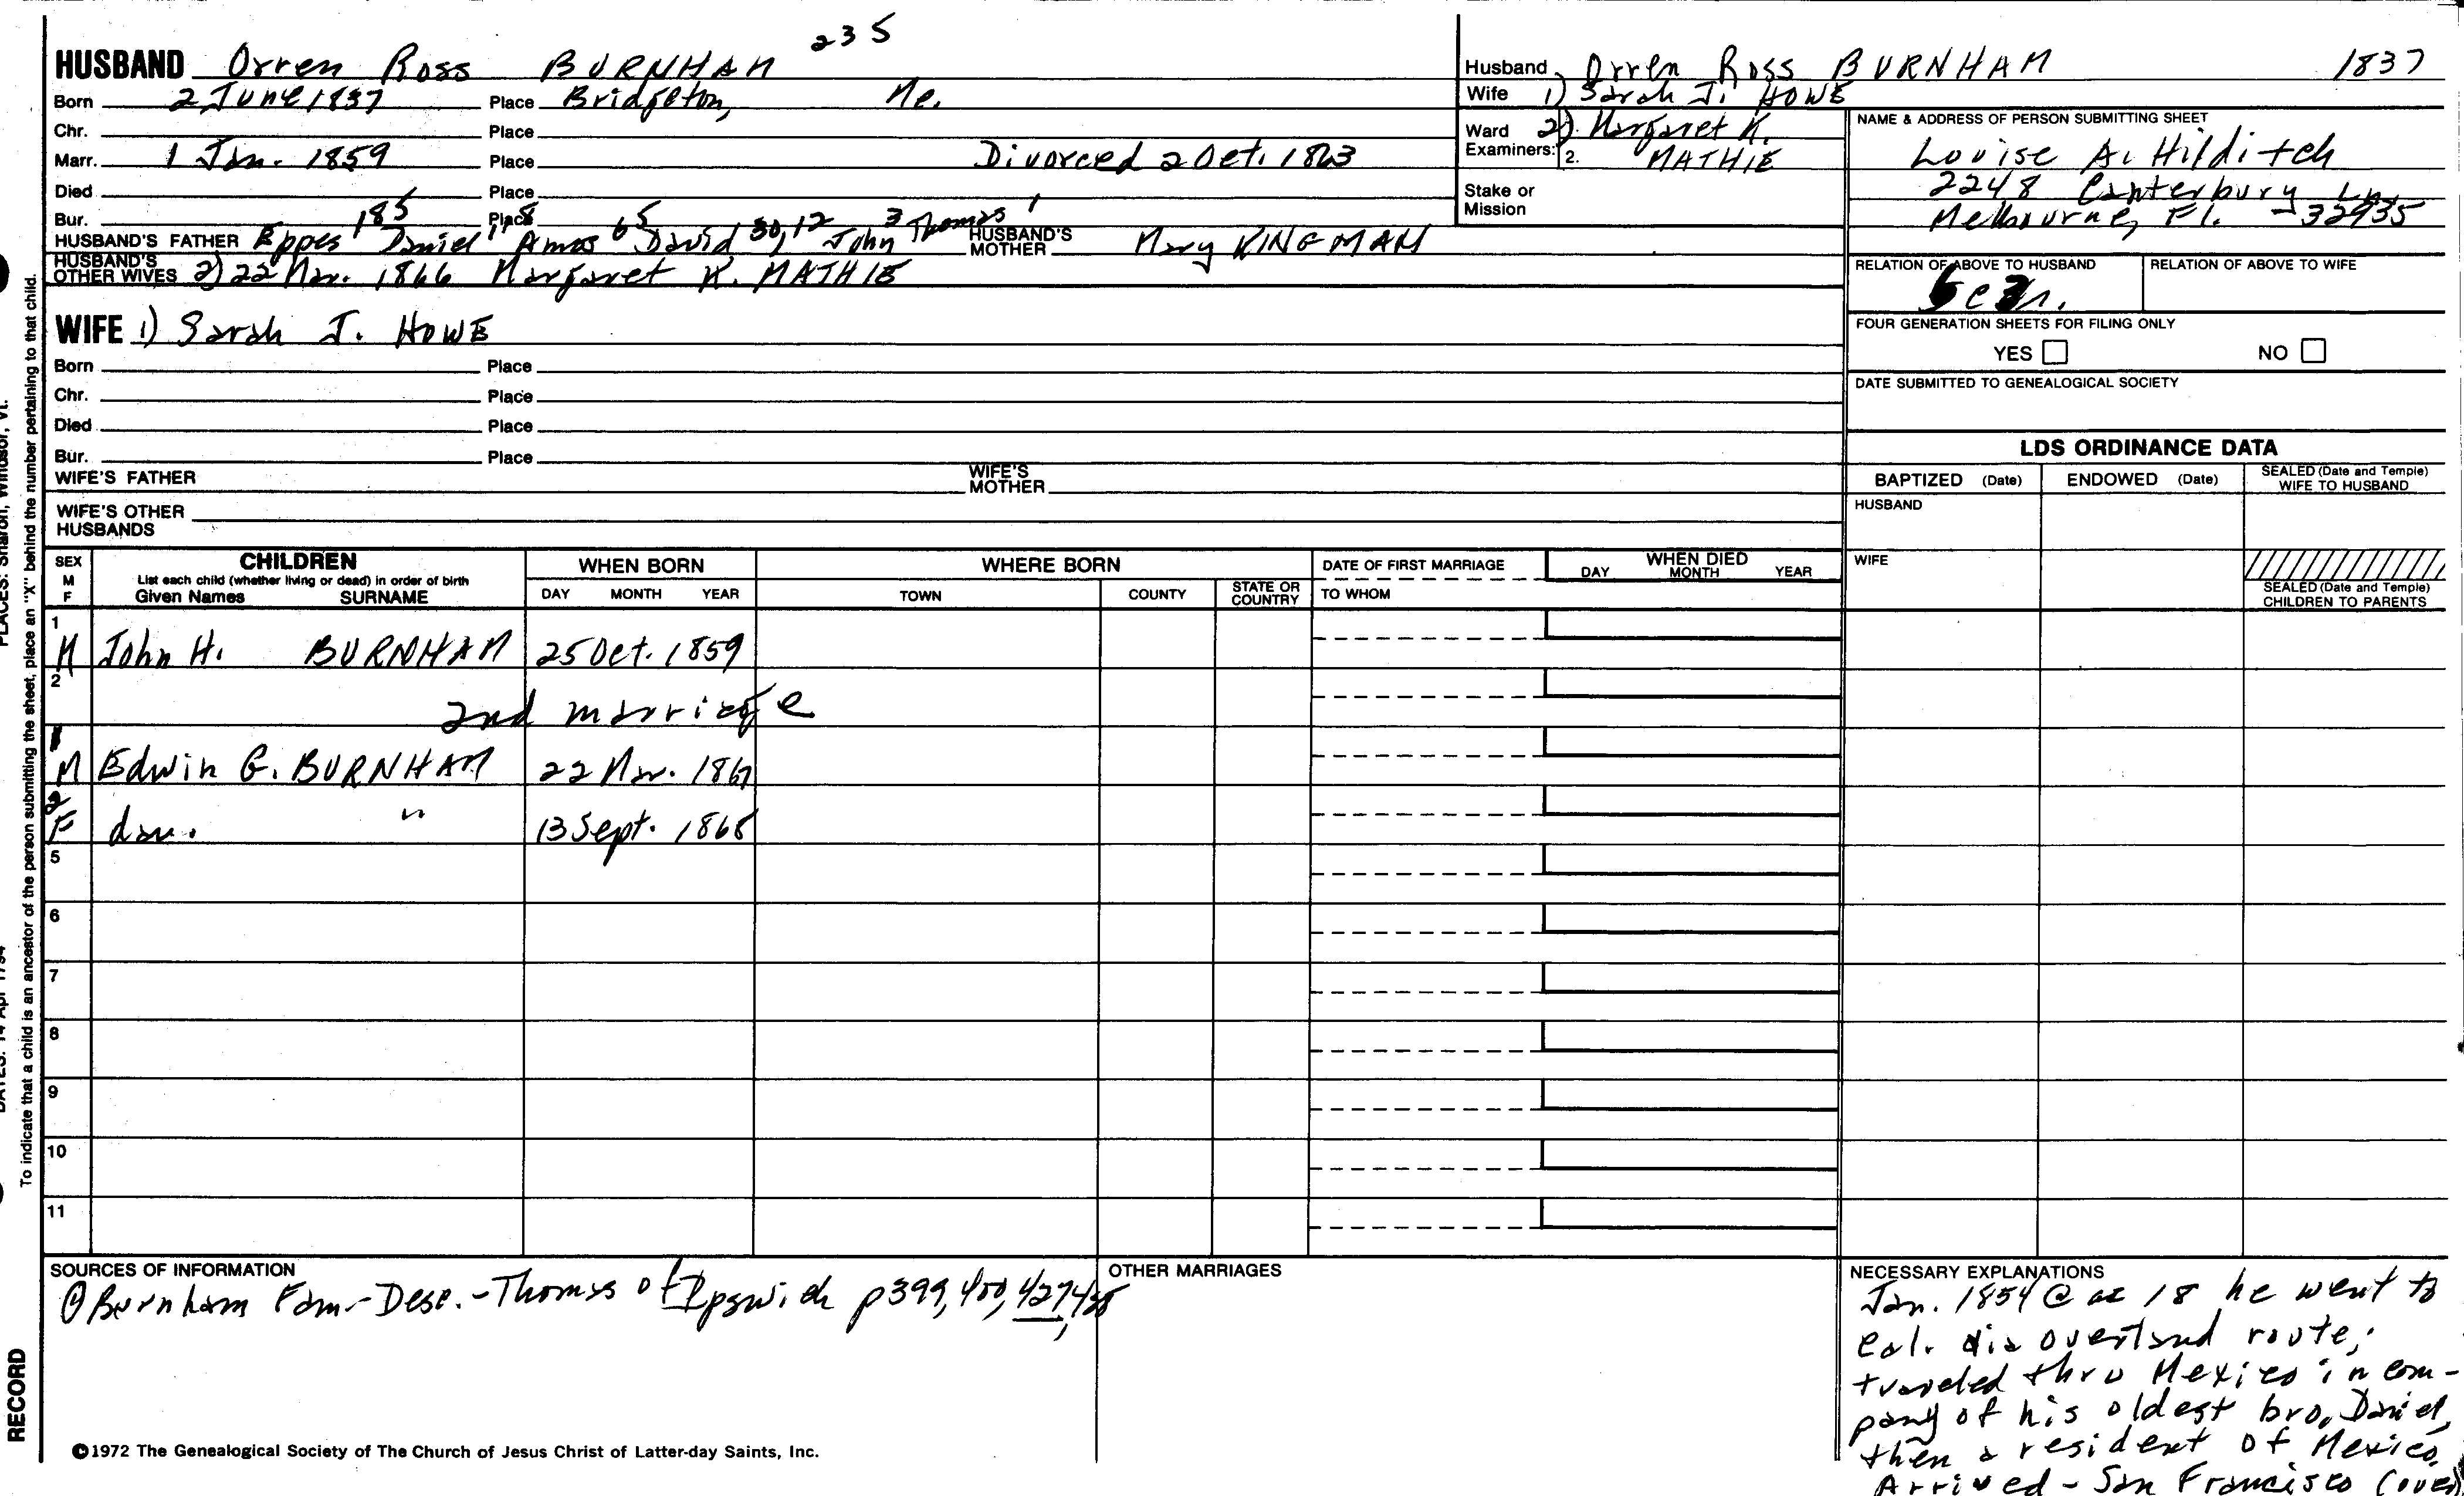 235
HUSBAND Orren Ross BURNHAM
Born 2 June 1837 Place Bridgeton, Me.
Chr. Place
Marr. 1 Jan. 1859 Place Divorced 2 Oct. 1863
Died Place
Bur. Place
185 8 65 30,12 3 1
HUSBAND'S FATHER Eppes Daniel Amos David John Thomas HUSBAND'S MOTHER Mary KINGMAN
HUSBAND'S OTHER WIVES 2) 22 Mar. 1866 Margaret K. MATHIE
WIFE 1) Sarah J. HOWE
Born Place
Chr. Place
Died Place
Bur. Place
WIFE'S FATHER WIFE'S MOTHER
WIFE'S OTHER HUSBANDS
Husband Orren Ross BURNHAM 1837
Wife 1) Sarah J. HOWE
Ward 2) Margaret K.
Examiners: 2. MATHIE
Stake or
Mission
NAME & ADDRESS OF PERSON SUBMITTING SHEET
Louise A. Hilditch
2248 Canterbury Ln.
Melbourne, Fl. - 32935
RELATION OF ABOVE TO HUSBAND RELATION OF ABOVE TO WIFE
FOUR GENERATION SHEETS FOR FILING ONLY
YES NO
DATE SUBMITTED TO GENEALOGICAL SOCIETY
LDS ORDINANCE DATA
BAPTIZED (Date) ENDOWED (Date) SEALED (Date and Temple) WIFE TO HUSBAND
HUSBAND
WIFE
SEALED (Date and Temple) CHILDREN TO PARENTS
SEX M F CHILDREN WHEN BORN WHERE BORN DATE OF FIRST MARRIAGE WHEN DIED
List each child (whether living or dead) in order of birth
Given Names SURNAME DAY MONTH YEAR TOWN COUNTY STATE OR COUNTRY TO WHOM DAY MONTH YEAR
1
M John H. BURNHAM 25 Oct. 1859
2
2nd marriage
1
M Edwin G. BURNHAM 22 Mar. 1867
2
F dau. " 13 Sept. 1868
5
6
7
8
9
10
11
SOURCES OF INFORMATION
① Burnham Fam.-Desc.-Thomas of Ipswich p399, 400, 427,428
OTHER MARRIAGES
NECESSARY EXPLANATIONS
Jan. 1854 @ ae 18 he went to
Cal. via overland route;
traveled thru Mexico in com-
pany of his oldest bro, Daniel,
then a resident of Mexico.
Arrived - San Francisco (over)
©1972 The Genealogical Society of The Church of Jesus Christ of Latter-day Saints, Inc.
To indicate that a child is an ancestor of the person submitting the sheet, place an "X" behind the number pertaining to that child.
PLACES: Sharon, Windsor, Vt.
DATES: 14 Apr 1794
RECORD